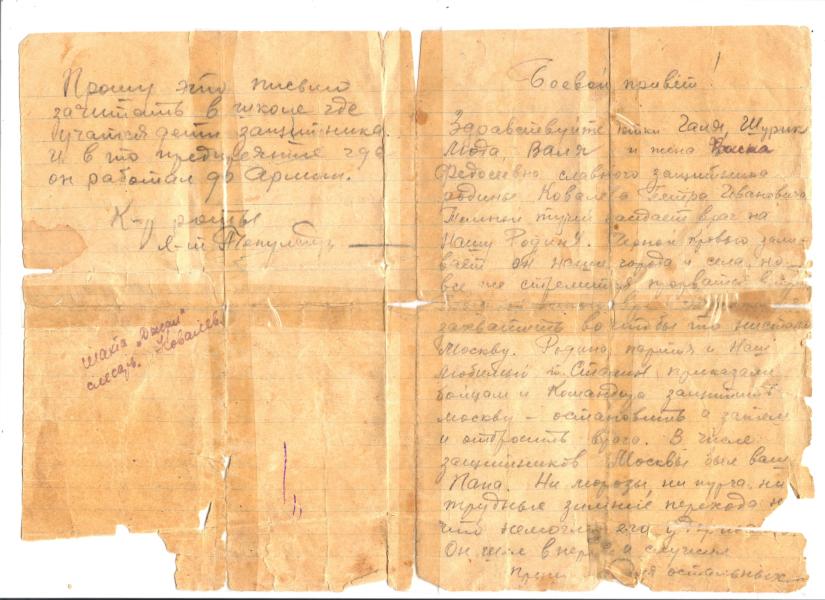 Прошу это письмо
зачитать в школе где
учатся дети защитника.
И в то предприятие где
он работал до Армии.
К-р роты
л-т
шахта
слесарь. Ковалев.
Боевой привет!
Здравствуйте детки Галя, Шурик
Люда Валя и жена
Федосеевна славного защитника
родины Ковалева Петра Ивановича
Темной тучей враг на
Нашу Родину. Черной кровью зали-
вает он наши города и села, но
все же стремится прорваться в
захватить во чтобы то нистало
Москву. Родина, партия и Наш
любимый т. Сталин приказали
бойцам и командира защитить
москву - остановить а затем
и отбросить врага. В числе
защитников Москвы был ваш
Папа. Ни морозы, ни пурга, ни
трудные зимние перехода ни
что немогли его
Он шел вперед и
остальных